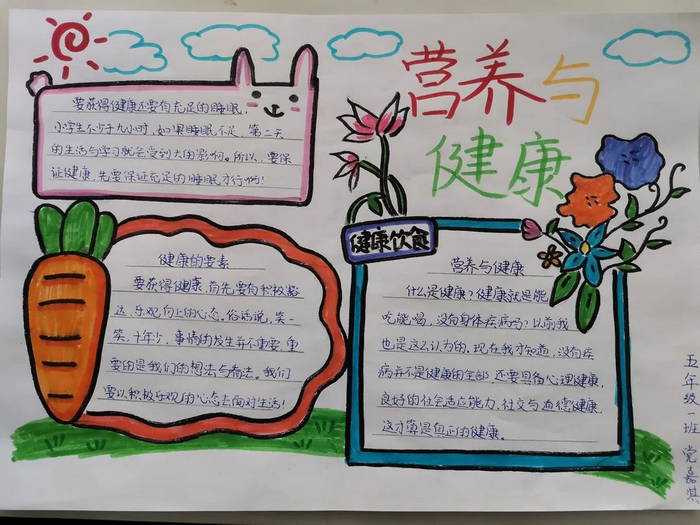 营养与
健康
要获得健康还要有充足的睡眠,
小学生不少于九小时,如果睡眠不足,第二天
的生活与学习就会受到大的影响。所以,要保
证健康,先要保证充足的睡眠才行啊!
健康的要素
要获得健康,首先要有积极豁
达、乐观向上的心态。俗话说,笑一
笑,十年少,事情的发生并不重要,重
要的是我们的想法与看法。我们
要以积极乐观的心态去面对生活!
健康饮食
营养与健康
什么是健康?健康就是能
吃能喝,没有身体疾病吗?以前我
也是这么认为的,现在我才知道,没有疾
病并不是健康的全部,还要具备心理健康,
良好的社会适应能力,社交与道德健康,
这才算是真正的健康。
五年级 班 党嘉淇